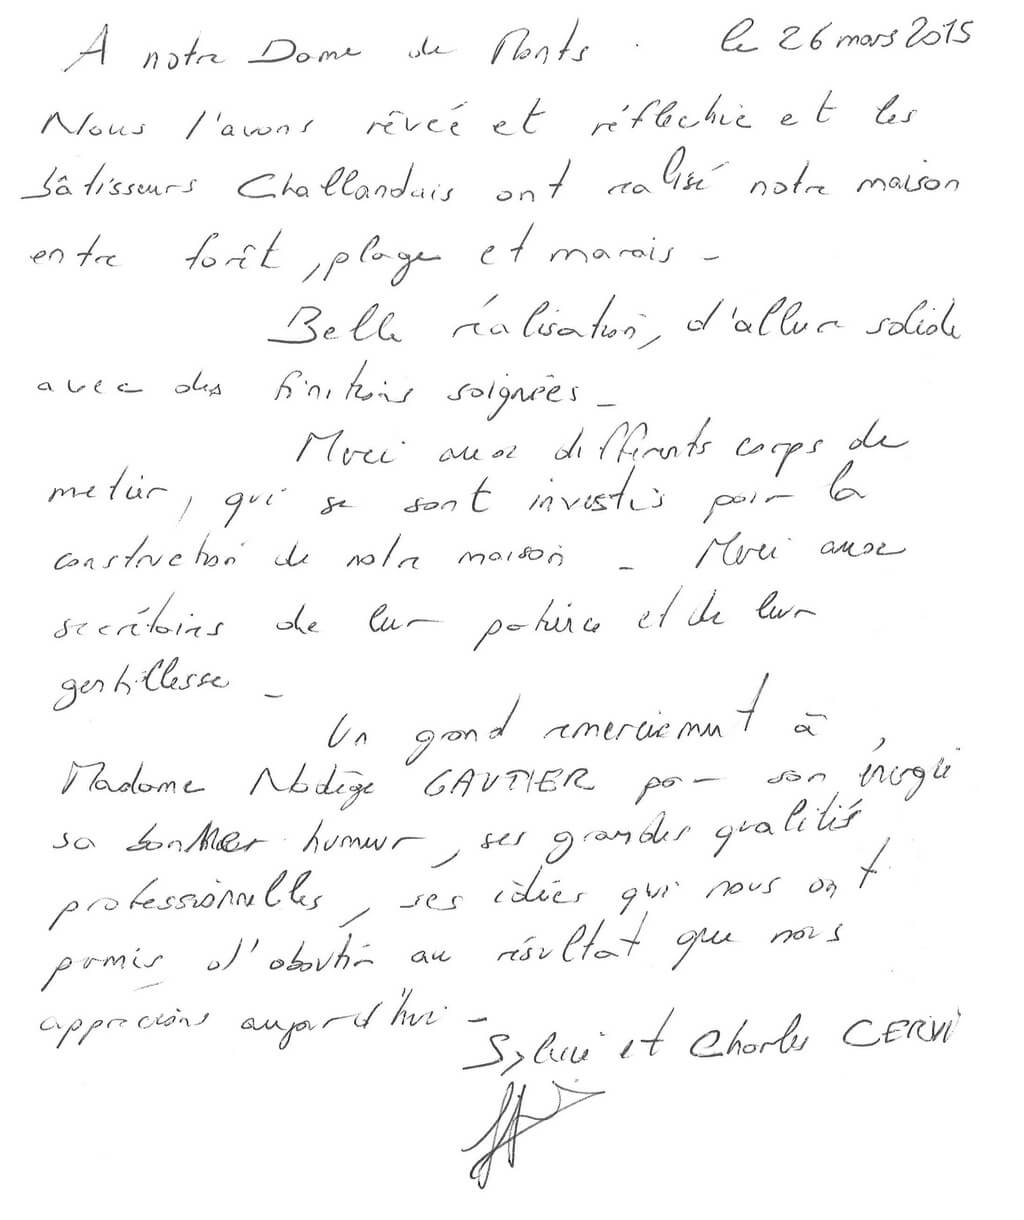 A notre Dame de Monts . le 26 mars 2015
Nous l'avons rêvée et réflechie et les
bâtisseurs Challandais ont réalisé notre maison
entre forêt, plage et marais -
Belle réalisation, d'allure solide
avec des finitions soignées -
Merci aux différents corps de
metier, qui se sont investis pour la
construction de notre maison - Merci aux
secrétaires de leur patience et de leur
gentillesse -
Un grand remerciement à
Madame Nadège GAUTIER pour son énergie,
sa bonne humeur, ses grandes qualités
professionnelles, ses idées qui nous ont
permis d'aboutir au résultat que nous
apprecions aujourd'hui -
Sylvie et Charles CERVI